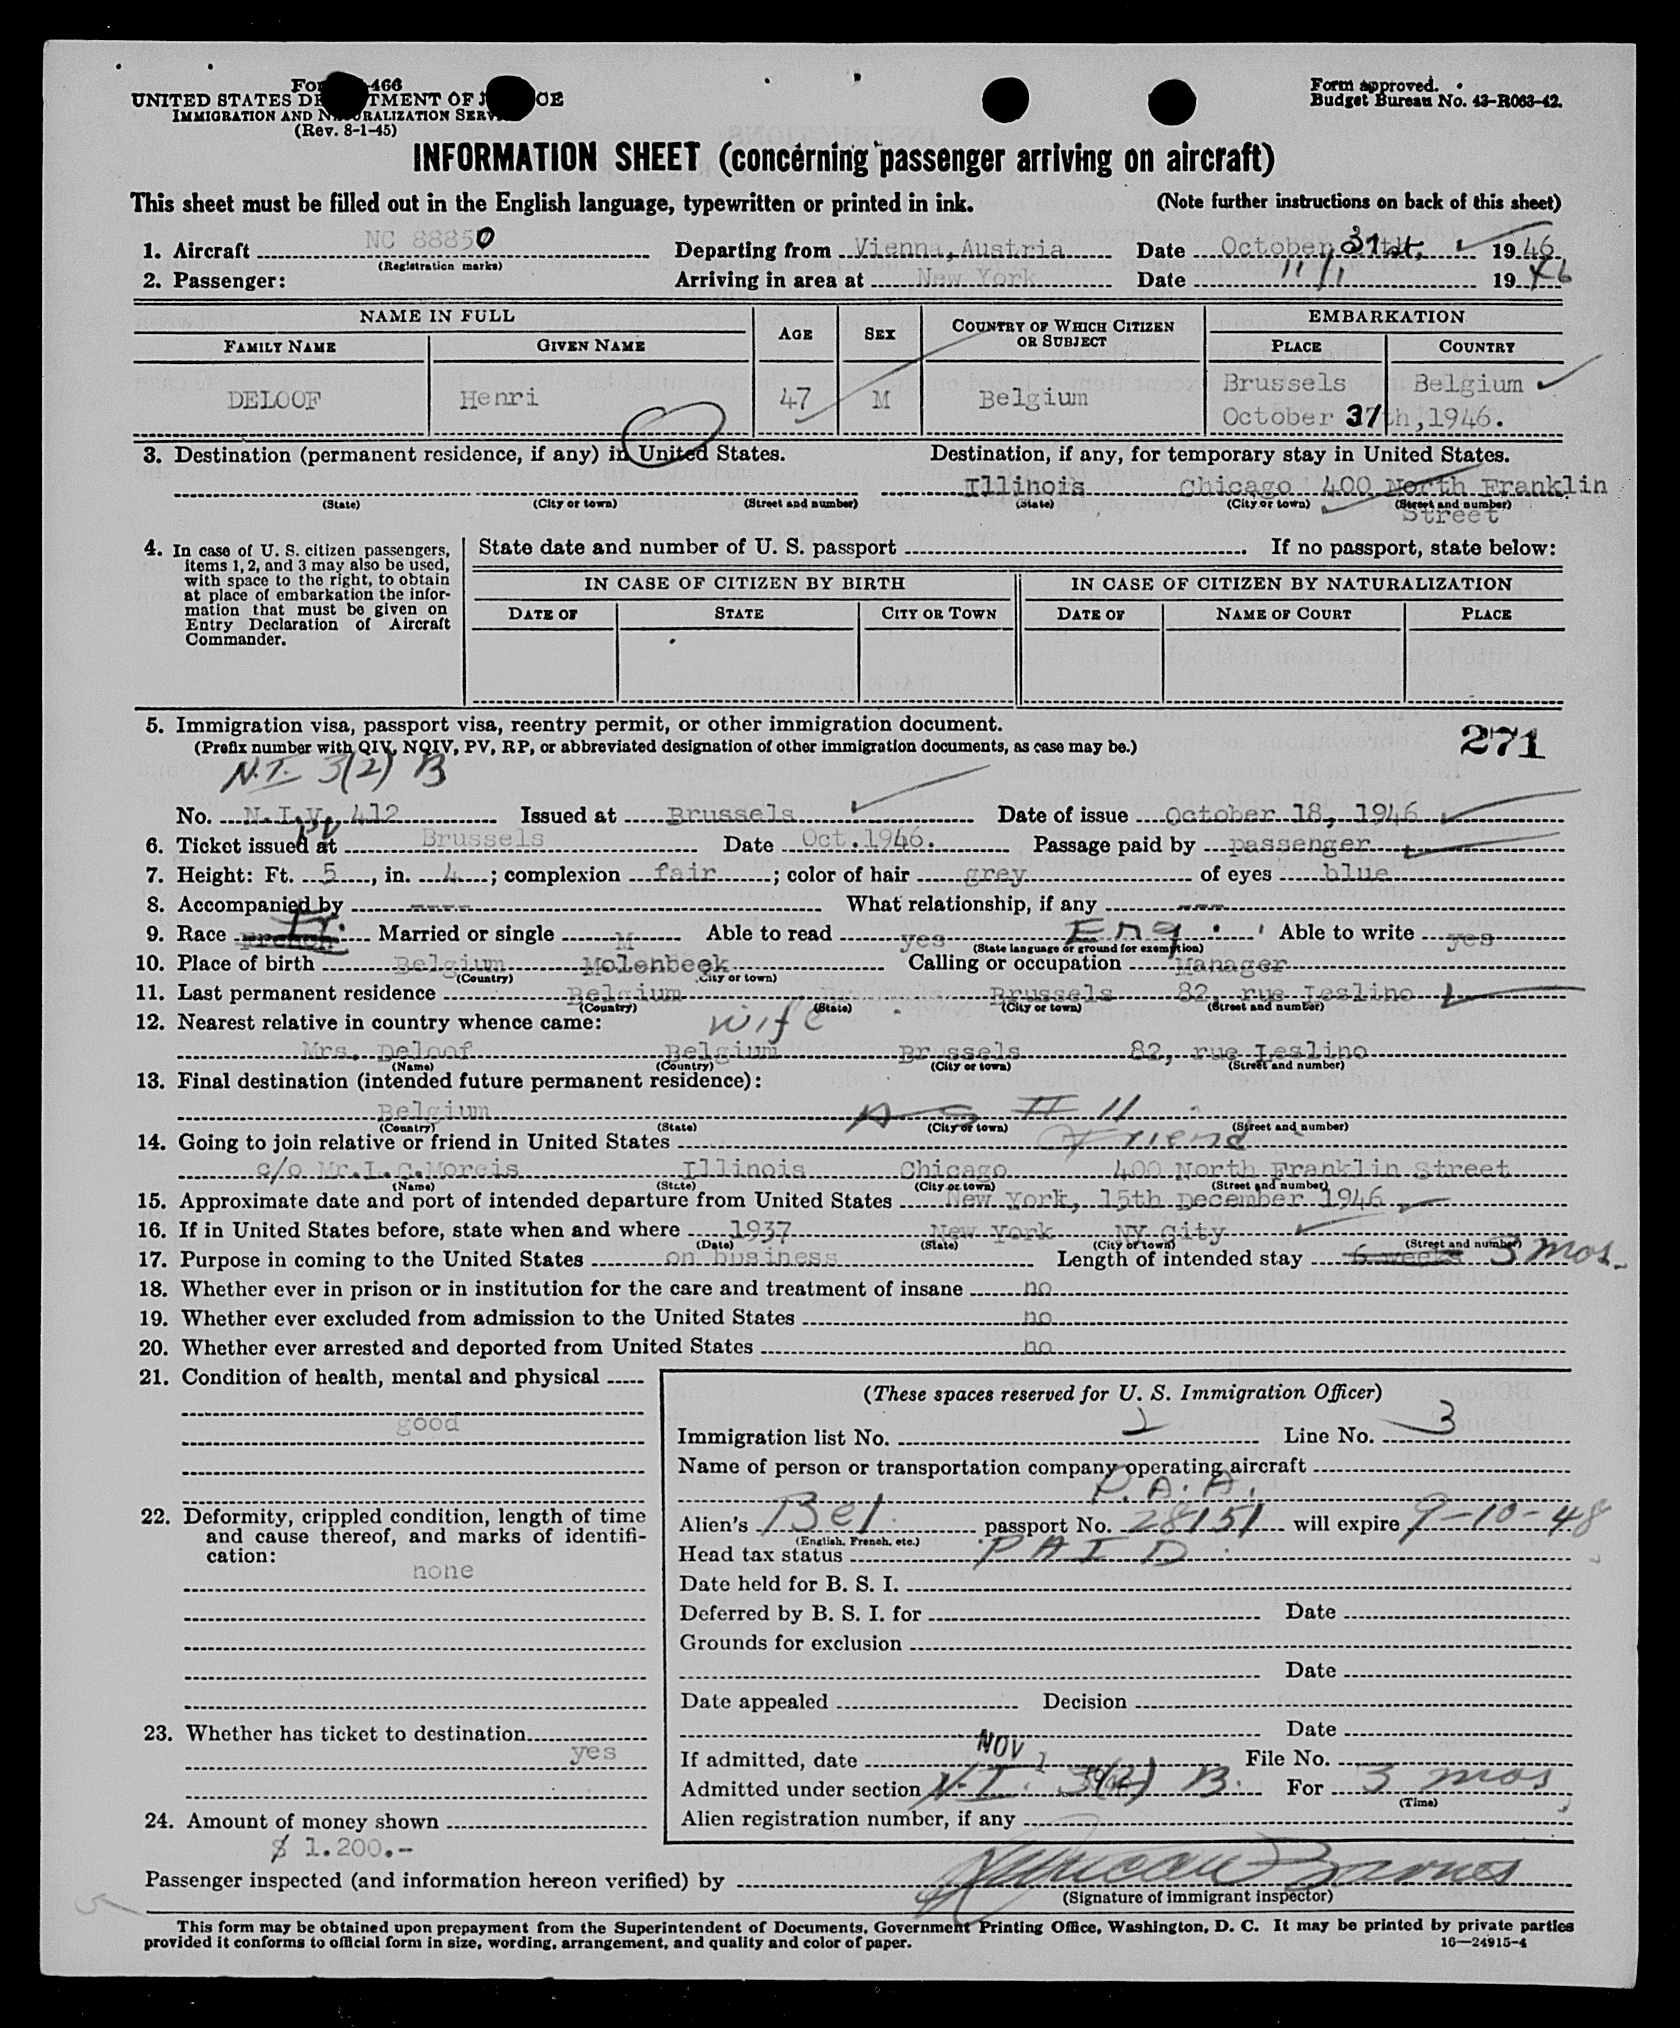 Form -466
UNITED STATES DEPARTMENT OF JUSTICE
IMMIGRATION AND NATURALIZATION SERVICE
(Rev. 8-1-45)
Form approved.
Budget Bureau No. 43-R063-42.
INFORMATION SHEET (concerning passenger arriving on aircraft)
This sheet must be filled out in the English language, typewritten or printed in ink. (Note further instructions on back of this sheet)
1. Aircraft NC 88850 Departing from Vienna, Austria Date October 31st, 1946
(Registration marks)
2. Passenger: Arriving in area at New York Date 11/1 1946
NAME IN FULL AGE SEX COUNTRY OF WHICH CITIZEN OR SUBJECT EMBARKATION
FAMILY NAME GIVEN NAME PLACE COUNTRY
DELOOF Henri 47 M Belgium Brussels Belgium
October 31th, 1946.
3. Destination (permanent residence, if any) in United States. Destination, if any, for temporary stay in United States.
Illinois Chicago 400 North Franklin
(State) (City or town) (Street and number) (State) (City or town) (Street and number)
Street
4. In case of U. S. citizen passengers, items 1, 2, and 3 may also be used, with space to the right, to obtain at place of embarkation the information that must be given on Entry Declaration of Aircraft Commander.
State date and number of U. S. passport . If no passport, state below:
IN CASE OF CITIZEN BY BIRTH IN CASE OF CITIZEN BY NATURALIZATION
DATE OF STATE CITY OR TOWN DATE OF NAME OF COURT PLACE
5. Immigration visa, passport visa, reentry permit, or other immigration document. 271
(Prefix number with QIV, NQIV, PV, RP, or abbreviated designation of other immigration documents, as case may be.)
N.I. 3(2) B
No. N.I.V. 412 Issued at Brussels Date of issue October 18, 1946
PV
6. Ticket issued at Brussels Date Oct. 1946. Passage paid by passenger
7. Height: Ft. 5, in. 4; complexion fair; color of hair grey of eyes blue
8. Accompanied by ---- What relationship, if any ---
9. Race French Fr. Married or single M Able to read yes Eng. Able to write yes
(State language or ground for exemption)
10. Place of birth Belgium Molenbeek Calling or occupation Manager
(Country) (City or town)
11. Last permanent residence Belgium Brussels 82, rue Leslino
(Country) (State) (City or town) (Street and number)
12. Nearest relative in country whence came: wife
Mrs. Deloof Belgium Brussels 82, rue Leslino
(Name) (Country) (City or town) (Street and number)
13. Final destination (intended future permanent residence):
Belgium AS # 11
(Country) (State) (City or town) (Street and number)
14. Going to join relative or friend in United States Friend
c/o Mr. L. C. Morcis Illinois Chicago 400 North Franklin Street
(Name) (State) (City or town) (Street and number)
15. Approximate date and port of intended departure from United States New York, 15th December 1946
16. If in United States before, state when and where 1937 New York NY City
(Date) (State) (City or town) (Street and number)
17. Purpose in coming to the United States on business Length of intended stay 6 weeks 3 mos.
18. Whether ever in prison or in institution for the care and treatment of insane no
19. Whether ever excluded from admission to the United States no
20. Whether ever arrested and deported from United States no
21. Condition of health, mental and physical
good
22. Deformity, crippled condition, length of time and cause thereof, and marks of identification:
none
23. Whether has ticket to destination
yes
24. Amount of money shown
$ 1.200.-
(These spaces reserved for U. S. Immigration Officer)
Immigration list No. 1 Line No. 3
Name of person or transportation company operating aircraft
P.A.A.
Alien's Bel. passport No. 28151 will expire 9-10-48
(English, French, etc.)
Head tax status PAID
Date held for B. S. I.
Deferred by B. S. I. for Date
Grounds for exclusion
Date
Date appealed Decision
Date
If admitted, date NOV 1 File No.
Admitted under section N.I. 3(2) B. For 3 mos
(Time)
Alien registration number, if any
Passenger inspected (and information hereon verified) by
(Signature of immigrant inspector)
This form may be obtained upon prepayment from the Superintendent of Documents, Government Printing Office, Washington, D. C. It may be printed by private parties
provided it conforms to official form in size, wording, arrangement, and quality and color of paper. 16—24915-4